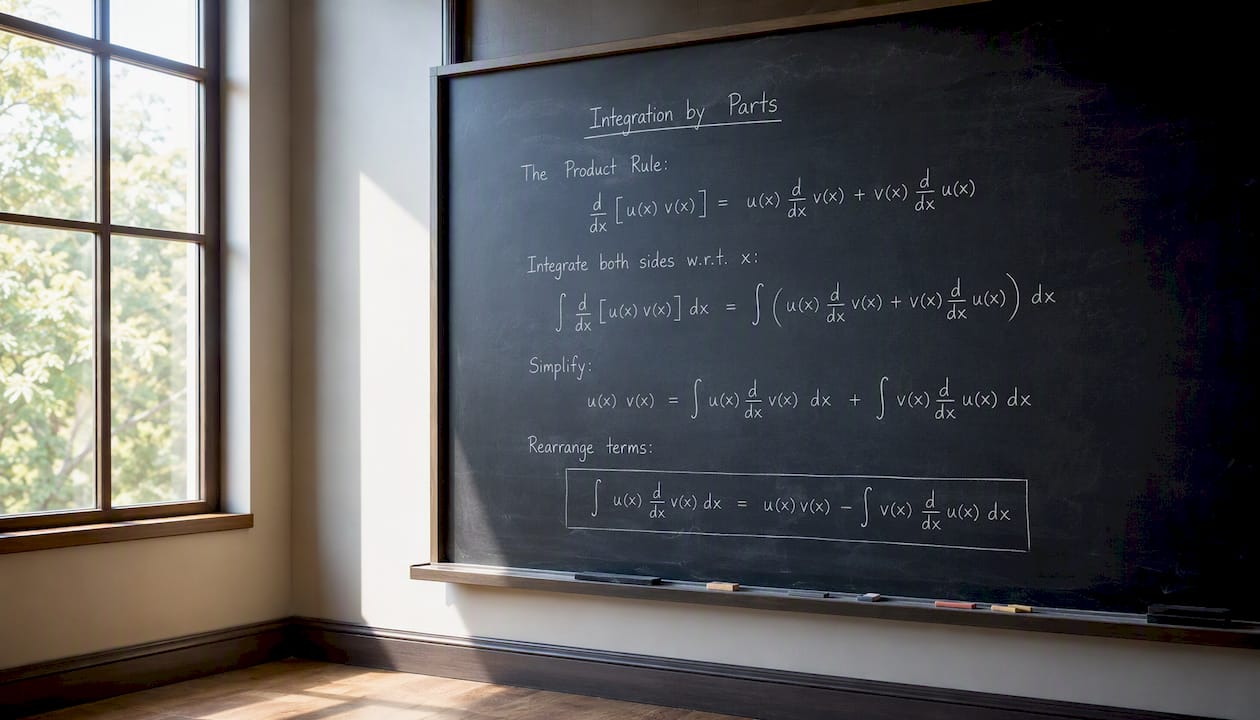 Integration by Parts
The Product Rule:
d/dx [u(x) v(x)] = u(x) d/dx v(x) + v(x) d/dx u(x)
Integrate both sides w.r.t. x:
∫ d/dx [u(x) v(x)] dx = ∫ (u(x) d/dx v(x) + v(x) d/dx u(x)) dx
Simplify:
u(x) v(x) = ∫ u(x) d/dx v(x) dx + ∫ v(x) d/dx u(x) dx
Rearrange terms:
∫ u(x) d/dx v(x) dx = u(x) v(x) − ∫ v(x) d/dx u(x) dx